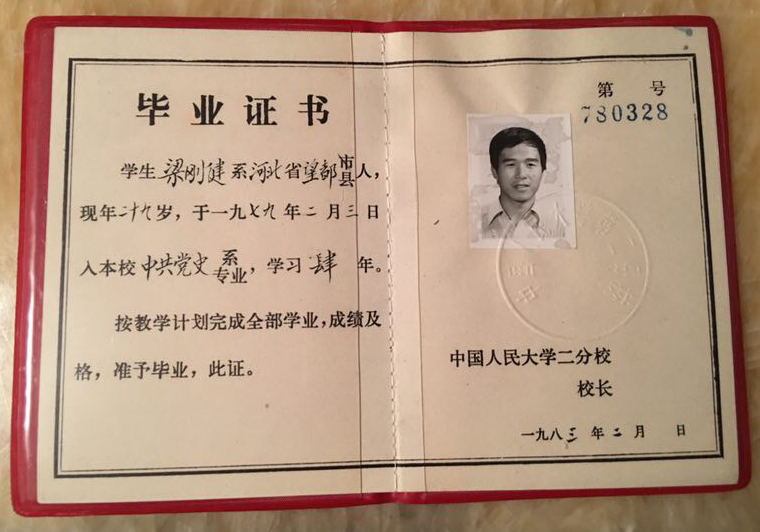 毕业证书
学生 梁刚健 系 河北 省 望都 市县 人，
现年 二十九 岁，于一九七九年二月三日
入本校 中共党史 系专业，学习 肆 年。
按教学计划完成全部学业，成绩及
格，准予毕业，此证。
第 号
780328
中国人民大学二分校
校长
一九八三年二月 日